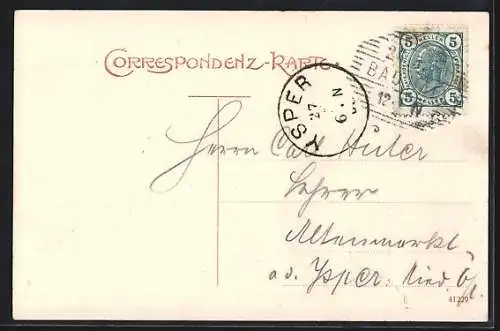 CORRESPONDENZ-KARTE.
5 5
5 5
HELLER
BAD
12
YSPER
27
6·N
Herrn Carl
Lehrer
Altenmarkt
a. d. Ysper. Nied. Ö/.
41229